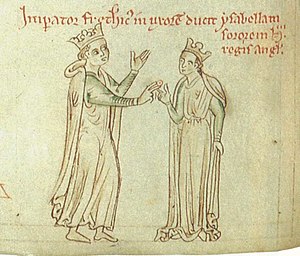 Imperator frethic' in uxorē ducit ysabellam
sororem h.
regis angl.